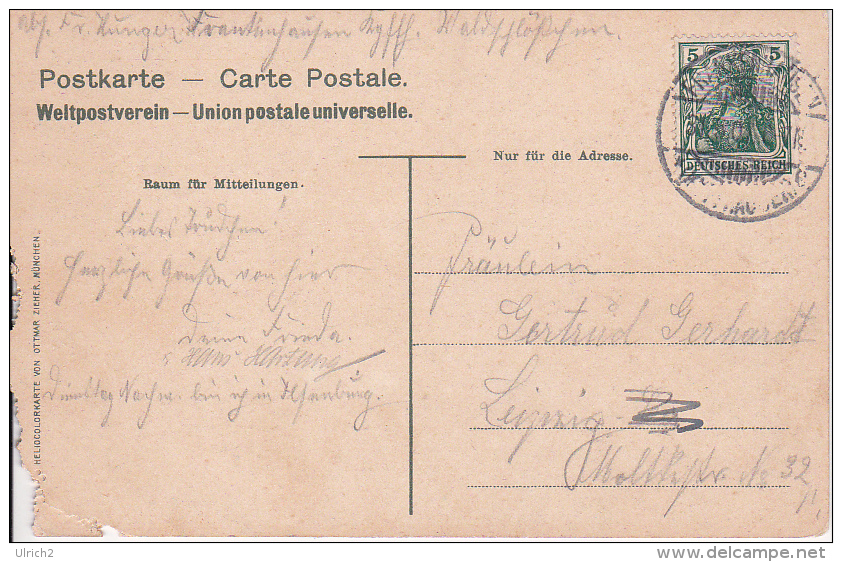 Abs. Fr. Frankenhausen Kyffh. Waldschlößchen.
Postkarte — Carte Postale.
Weltpostverein — Union postale universelle.
5 5
DEUTSCHES REICH
Nur für die Adresse.
Raum für Mitteilungen.
Liebes Trudchen!
Herzliche Grüße von hier
Deine Frieda.
Hans Hartung
Dienstag Nachm. bin ich in Ilsenburg.
Fräulein
Gertrud Gerhardt
Leipzig
Moltkestr. No 32
HELIOCOLORKARTE VON OTTMAR ZIEHER, MÜNCHEN.
Ulrich2
www.delcampe.net